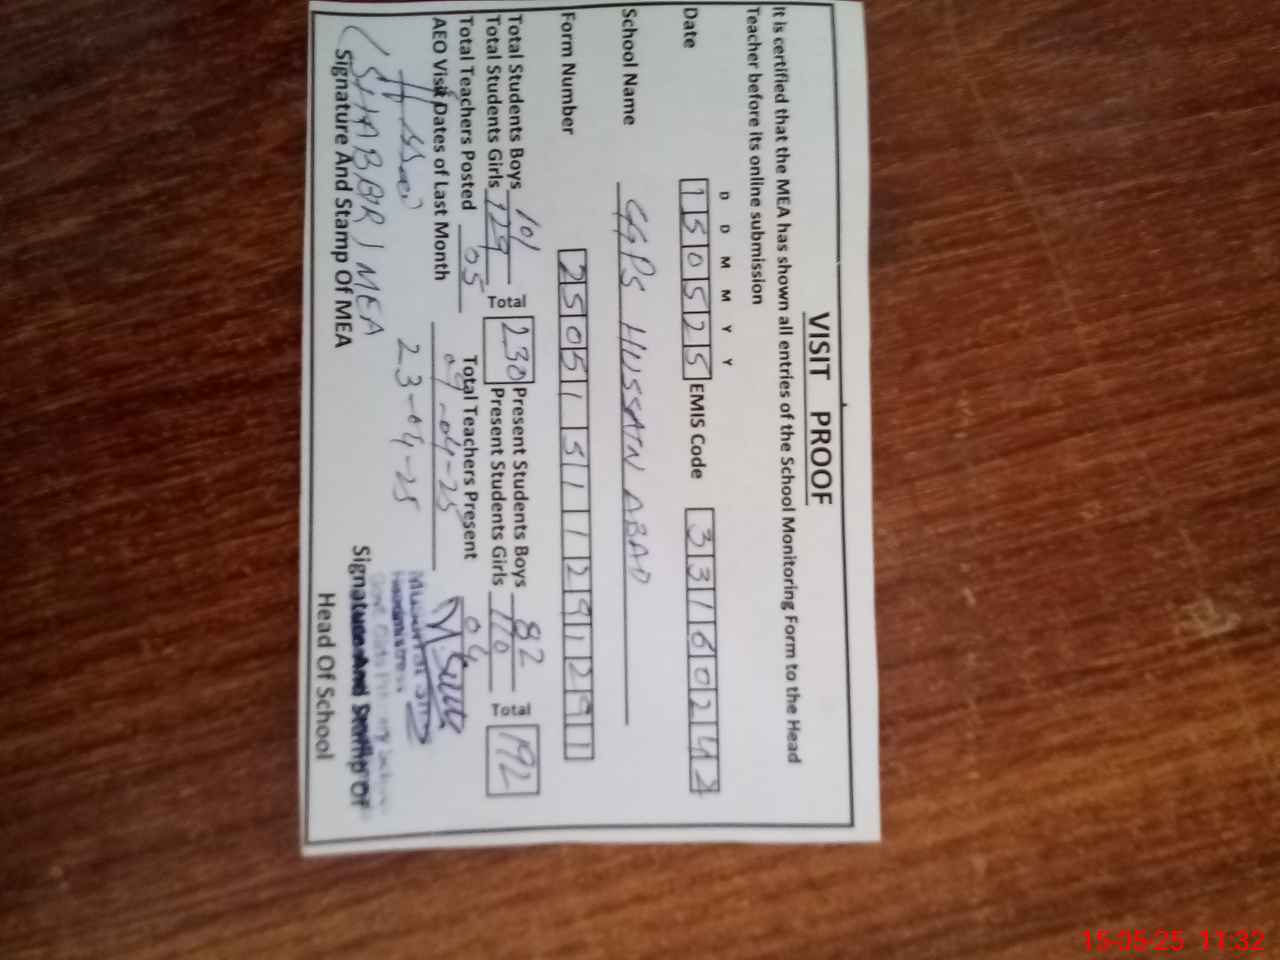 VISIT PROOF
It is certified that the MEA has shown all entries of the School Monitoring Form to the Head
Teacher before its online submission
D D M M Y Y
Date 150525 EMIS Code 33160242
School Name GGPS HUSSAIN ABAD
Form Number 25051511291291
Total Students Boys 101 Total 230 Present Students Boys 82 Total 192
Total Students Girls 129 Present Students Girls 110
Total Teachers Posted 05 Total Teachers Present 04
AEO Visit Dates of Last Month 09-04-25
23-04-25
MEA
Signature And Stamp Of MEA
Signature And Stamp Of
Head Of School
15-05-25 11:32